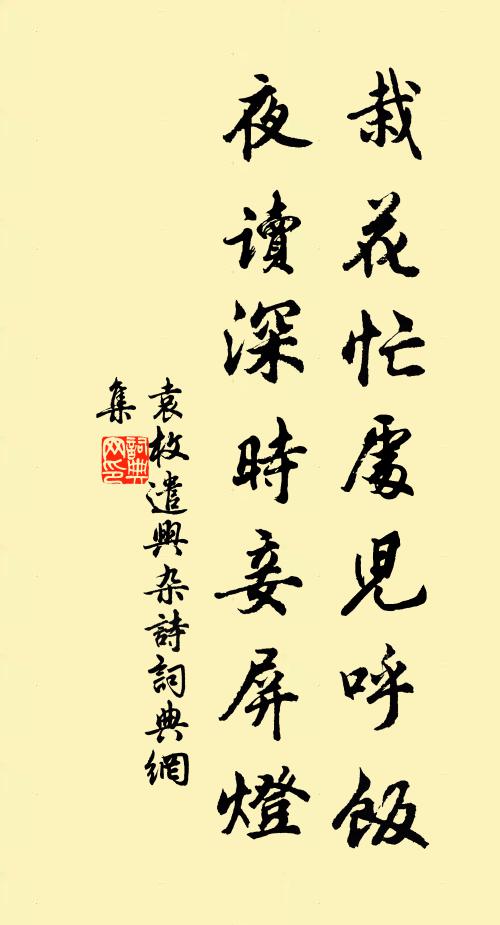 栽花忙處兒呼飯
夜讀深時妾屏燈
袁枚遣興杂詩詞典網
集
詞典
网印